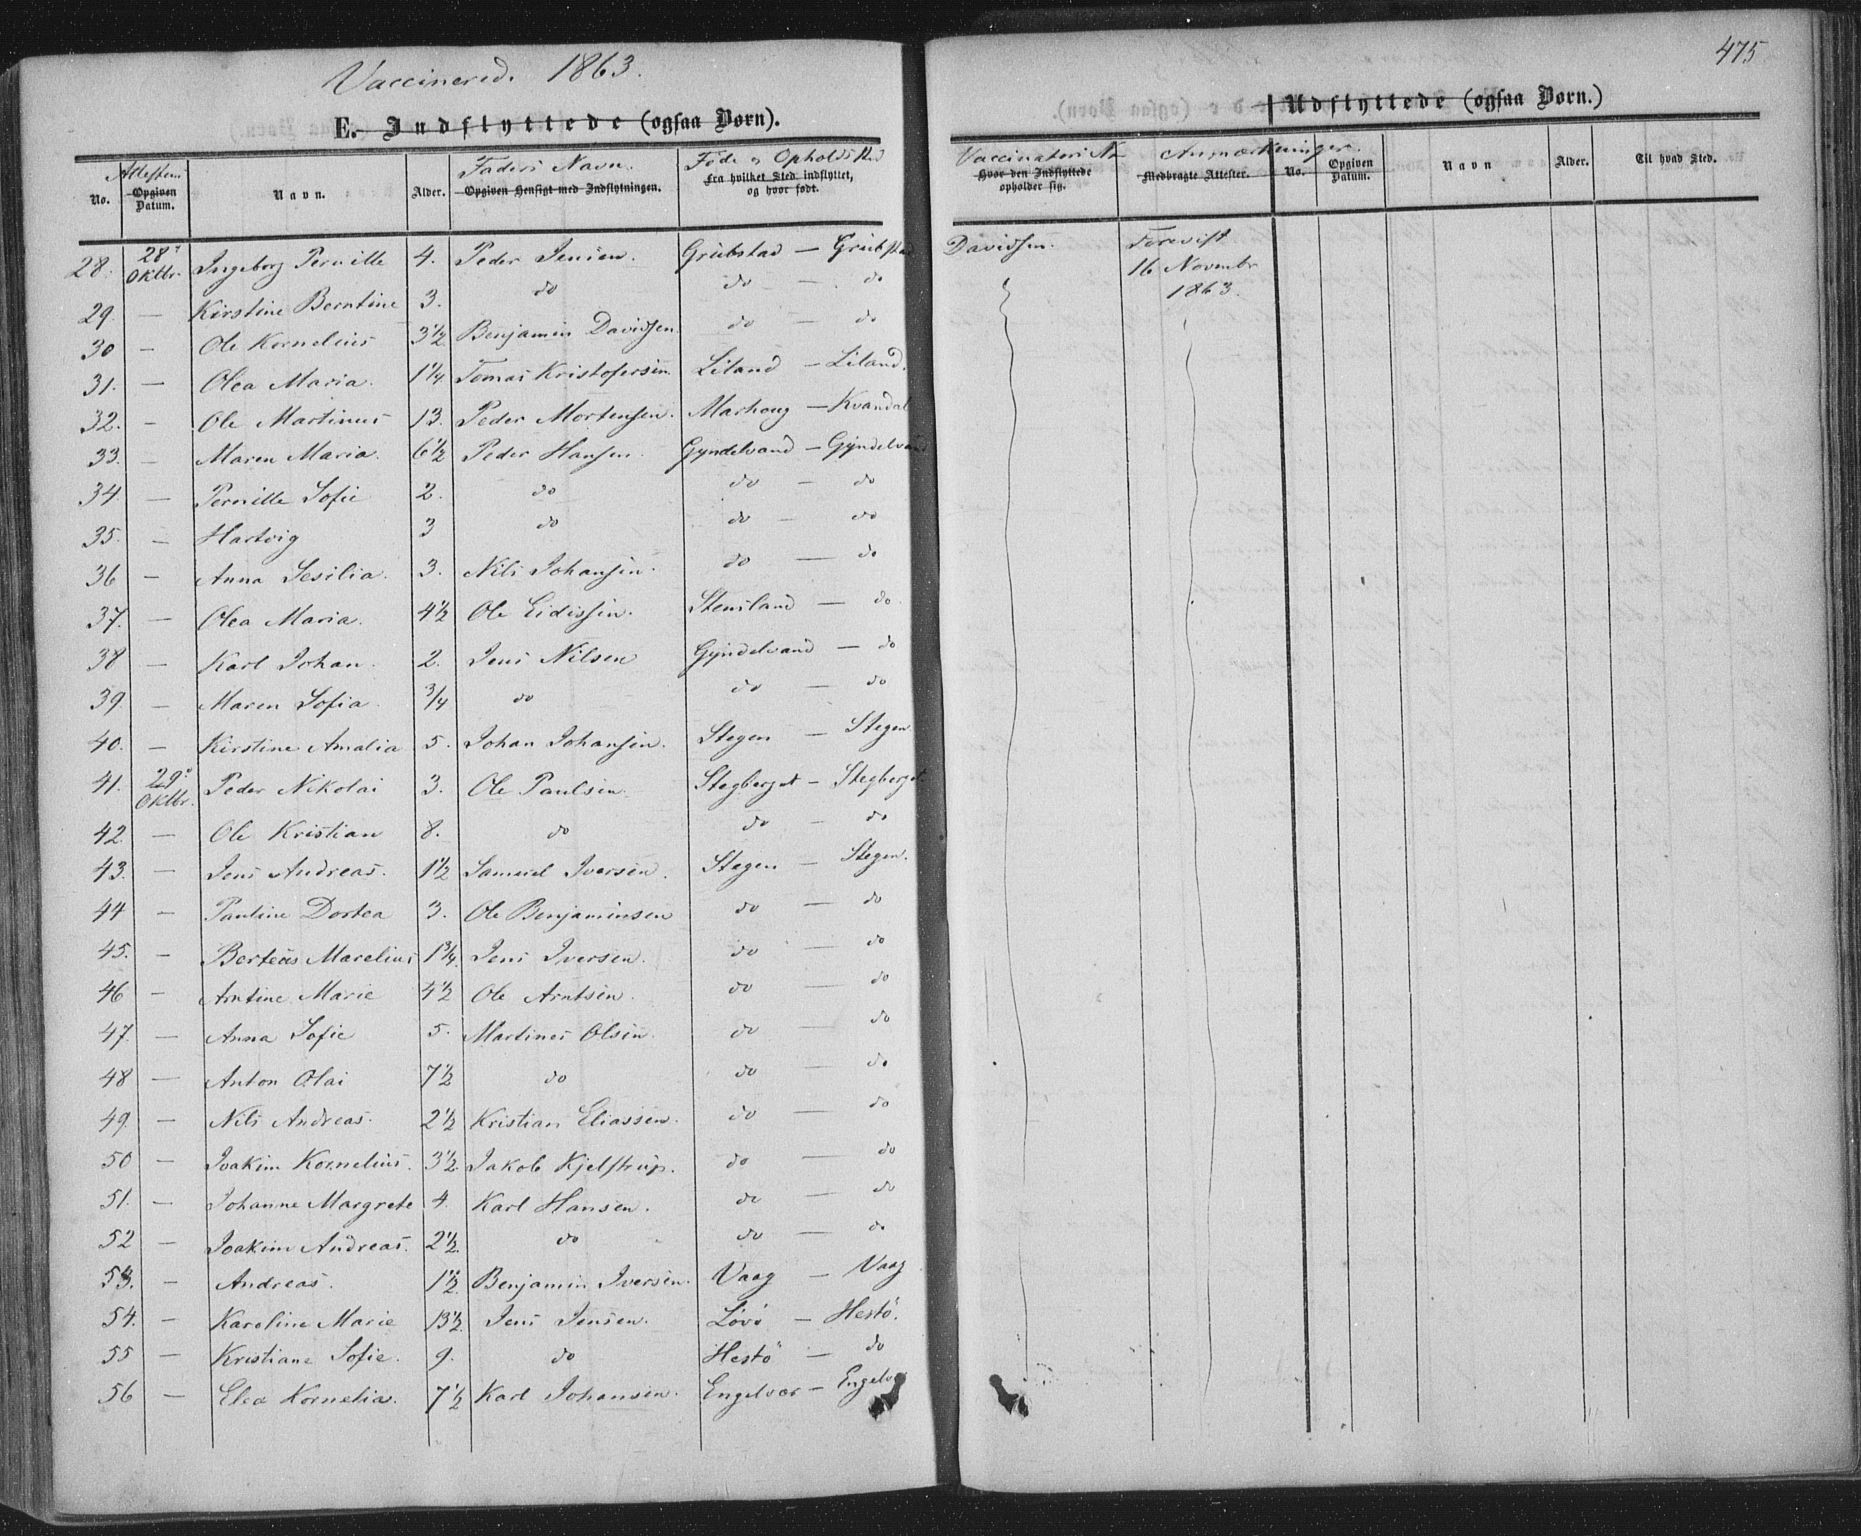 Vaccinered. 1863.
E. Indflyttede (ogsaa Børn).
No. Attestens Opgiven Datum. Navn. Alder. Faders Navn. Opgiven Hensigt med Indflytningen. Føde og Opholds Sted fra hvilket Sted indflyttet, og hvor født.
28. 28de Oktbr. Ingeborg Pernille 4. Peder Jensen. Grubstad — Grubstad
29. — Kirstine Berntine 3. do do — do
30 — Ole Kornelius 3 1/2 Benjamin Davidsen. do — do
31. — Olea Maria. 1 1/4 Tomas Kristofersen. Liland — Liland.
32. — Ole Martinus 13. Peder Mortensen. Marhoug — Kvandal
33. — Maren Maria. 6 1/2 Peder Hansen. Gyndelvand — Gyndelvand
34 — Pernille Sofie 2. do do — do
35. — Hartvig 3 do do — do
36 — Anna Sesilia. 3. Nils Johansen. do — do
37. — Olea Maria. 4 1/2 Ole Eidissen. Stensland — do.
38 — Karl Johan. 2. Jens Nilsen Gyndelvand — do
39 — Maren Sofia. 3/4 do do — do
40. — Kirstine Amalia 5. Johan Johansen. Stegen — Stegen
41. 29de Oktbr. Peder Nikolai 3. Ole Paulsen. Stegberget — Stegberget
42. — Ole Kristian 8. do do — do
43. — Jens Andreas. 1 1/2 Samuel Iversen. Stegen — Stegen.
44 — Pauline Dortea 3. Ole Benjaminsen do — do
45. — Berteus Marelius 1 3/4. Jens Iversen. do — do
46 — Arntine Marie 4 1/2 Ole Arntsen. do — do
47. — Anna Sofie 5. Martines Olsen. do — do
48 — Anton Olai 7 1/2 do do — do
49. — Nils Andreas. 2 1/2 Kristian Eliassen. do — do
50 — Joakim Kornelius. 3 1/2. Jakob Kjelstrup. do — do
51. — Johanne Margrete 4. Karl Hansen. do — do
52 — Joakim Andreas. 2 1/2. do do — do
53. — Andreas. 1 1/2. Benjamin Iversen. Vaag — Vaag
54. — Karoline Marie 13 1/2. Jens Jensen. Lövö — Hestö.
55 — Kristiane Sofie. 9. do Hestö — do
56 — Elea Kornelia. 7 1/2 Karl Johansen. Engelvær — Engelv
475
Udflyttede (ogsaa Børn.)
Hvor den Indflyttede opholder sig. Anmærkninger. Medbragte Attester. No. Opgiven Datum. Navn Alder. Til hvad Sted.
Davidsen. Forevist
16 Novembr
1863.